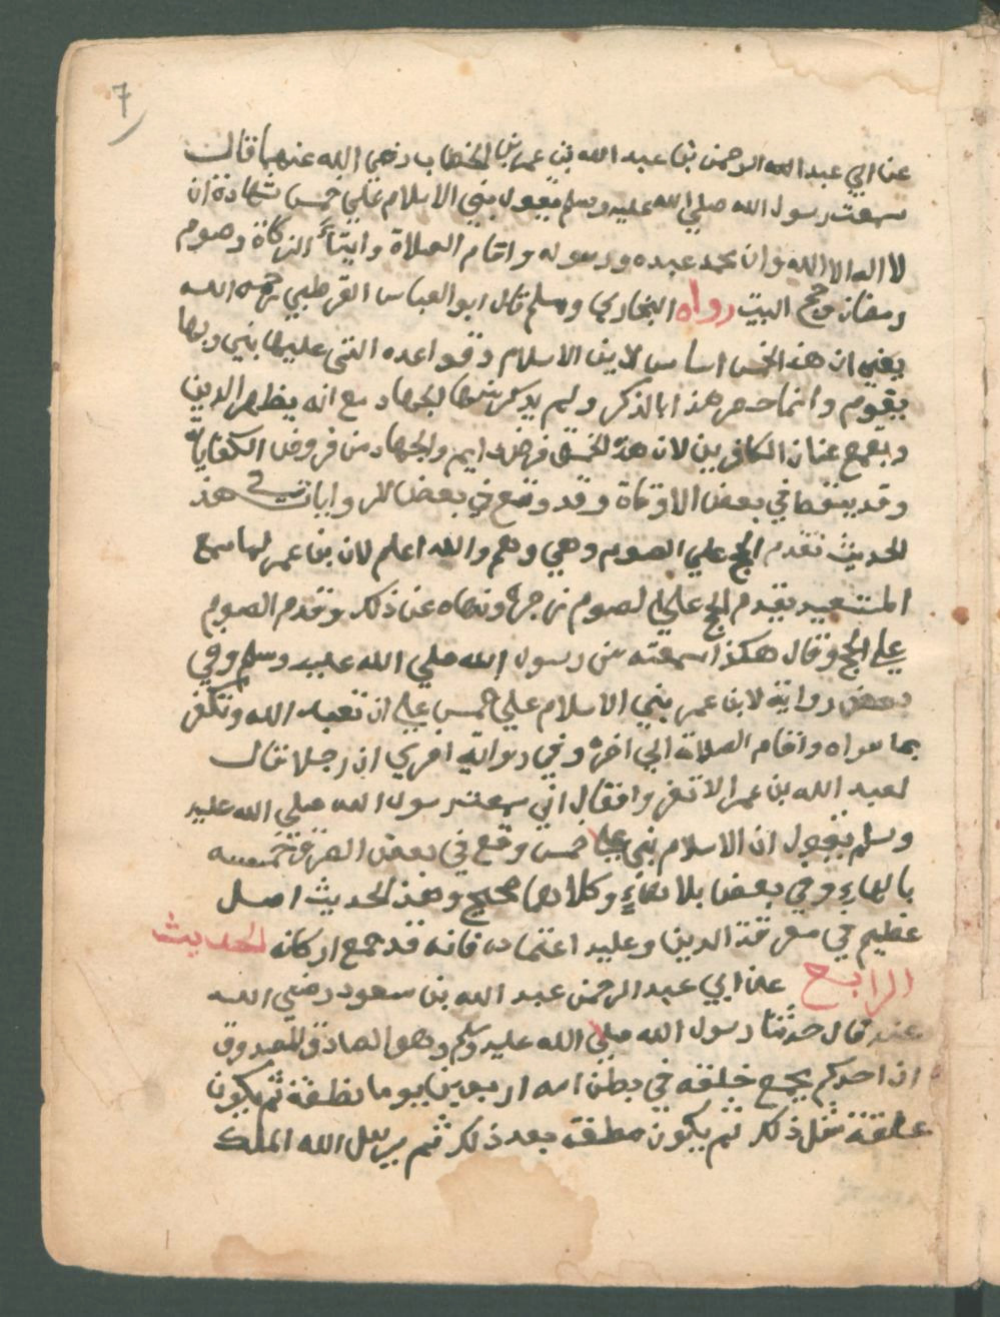 7
عن ابي عبد الله الرحمن بن عبد الله بن عمر بن الخطاب رضي الله عنهما قال
سمعت رسول الله صلي الله عليه وسلم يقول بني الاسلام علي خمس شهادة ان
لا اله الا الله وان محمد عبده ورسوله واقام الصلاة وايتآء الزكاة وصوم
رمضان وحج البيت رواه البخاري ومسلم قال ابو العباس القرطبي رحمه الله
يعني ان هذه الخمس اساس لاين الاسلام وقواعده التي عليها بني وبها
يقوم وانما خص هذا بالذكر ولم يذكر منها الجهاد مع انه يظهر الدين
ويقمع عنان الكافرين لان هذه الخمس فرض دايم والجهاد من فروض الكفاية
وقد يسقط في بعض الاوقاة وقد وقع في بعض الروايات في هذ
الحديث تقدم الحج علي الصوم وهي وهم والله اعلم لان بن عمر لما سمع
المستعيد يقدم الحج علي الصوم زجره ونهاه عن ذلك وقدم الصوم
علي الحج وقال هكذا سمعته من رسول الله صلي الله عليه وسلم وفي
بعض رواية لابن عمر بني الاسلام علي خمس علي ان تعبد الله وتكفر
بما سواه واقام الصلاة الي اخره وفي رواية اخري ان رجلا قال
لعبد الله بن عمر الا تغزوا فقال اني سمعت رسول الله صلي الله عليه
وسلم يقول ان الاسلام بني علي خمس وقع في بعض الطرق خمسه
بالهاء وفي بعضا بلا هاءٍ وكلاهما صحيح وهذ الحديث اصل
عظيم في معرفة الدين وعليه اعتماده فانه قد جمع اركانه الحديث
الرابع عن ابي عبد الرحمن عبد الله بن سعود رضي الله
عنه قال حدثنا رسول الله صلي الله عليه وسلم وهو الصادق المصدوق
ان احدكم يجمع خلقه في بطن امه اربعين يوما نطفة ثم يكون
علقة مثل ذلك ثم يكون مطغة بعد ذلك ثم يرسل الله الملك